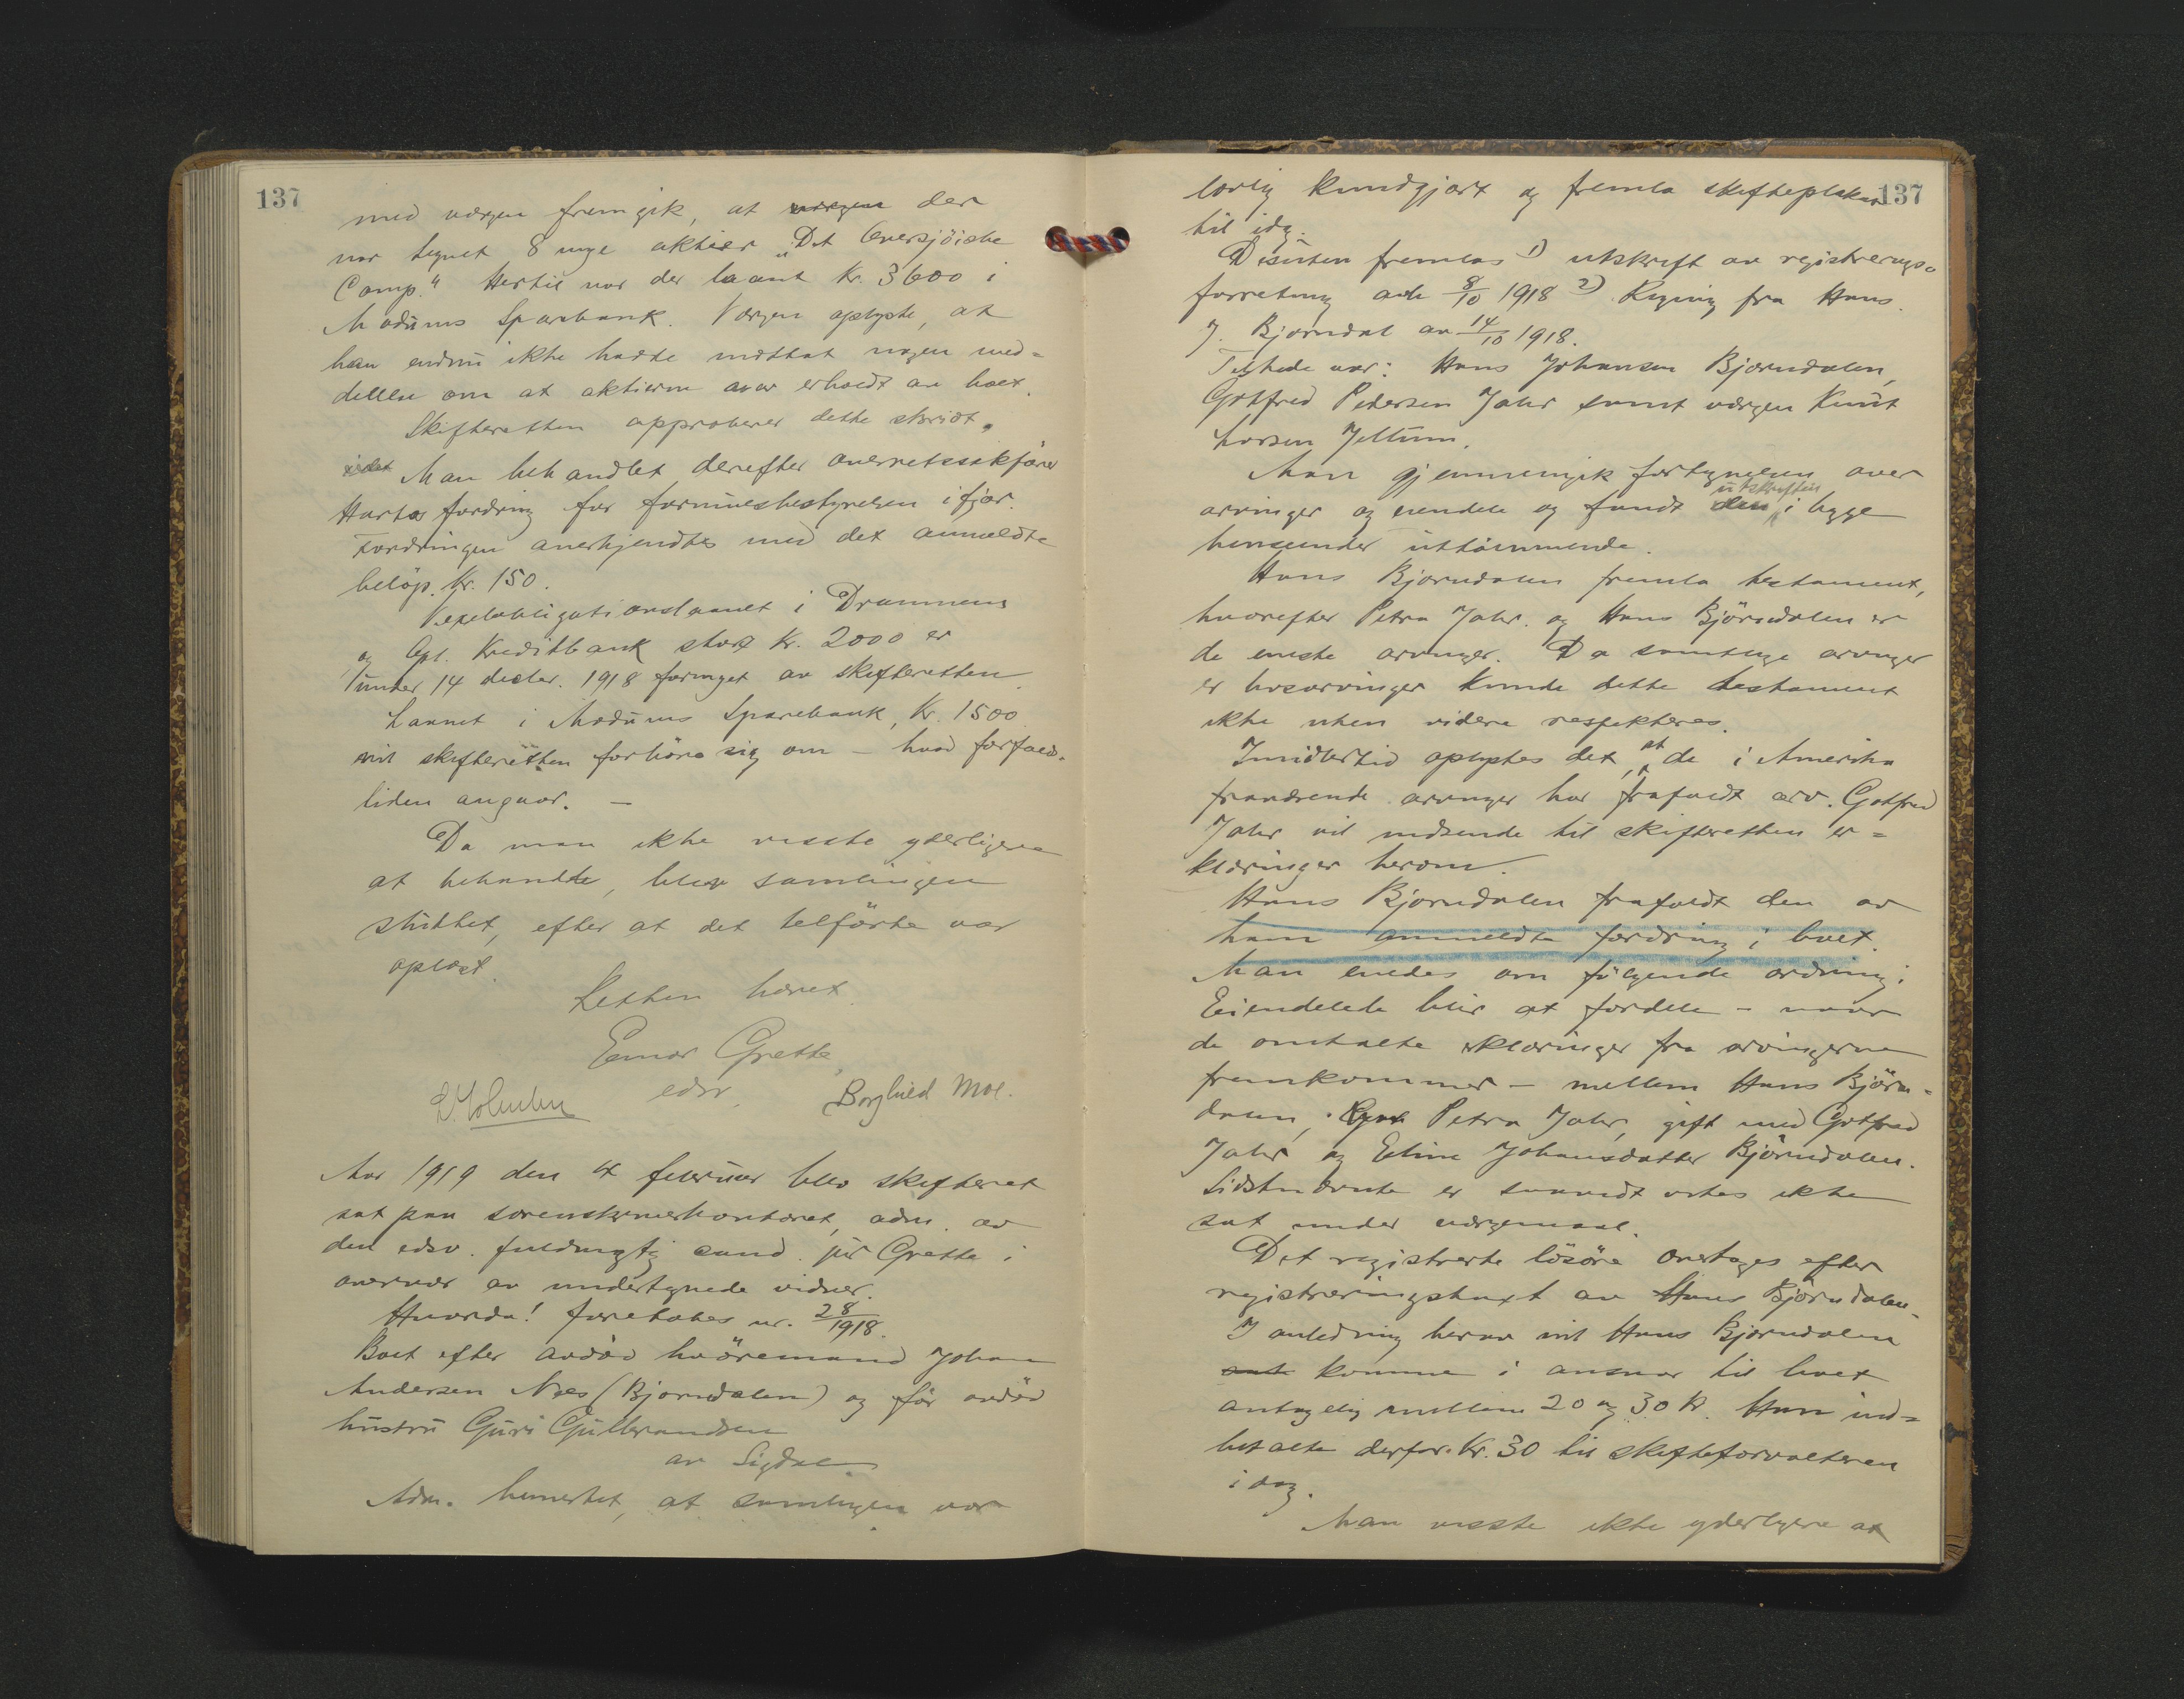 137
med værgen fremgik, at værgen der
var tegnet 8 nye aktier „Det Oversjöiske
Comp." Hertil var der laant Kr. 3600 i
Modums Sparebank. Værgen oplyste, at
han endnu ikke hadde mottat nogen med=
delelse om at aktierne var erholdt av boet.
Skifteretten approberer dette skridt.
Man behandlet derefter overretssakförer
Hartas fordring for formuesbestyrelsen ifjor.
Fordringen anerkjendtes med det anmeldte
belöp. Kr. 150.
Vexelobligationslaanet i Drammens
og Opl. Kreditbank stort Kr. 2000 er
under 14 decbr. 1918 fornyet av skifteretten.
Laanet i Modums Sparebank, Kr. 1500
vil skifteretten forhöre sig om – hvad forfalds-
tiden angaar. –
Da man ikke visste yderligere
at behandle, blev samlingen
sluttet, efter at det tilförte var
oplæst.
Retten hævet.
Einar Grette
edsv.
Borghild Moe.
Aar 1919 den 4 februar blev skifteret
sat paa sorenskriverkontoret, adm. av
den edsv. fuldmægtig cand. jur Grette i
overvær av undertegnede vidner.
Hvorda! foretokes nr. 28/1918.
Boet efter avdöd husöremand Johan
Andersen Næs (Bjorndalen) og för avdöd
hustru Guri Gulbrandsen
av Sigdal
Adm. bemerket, at samlingen var
137
lovlig kundgjort og fremla skifteplakat
til idag.
Desuten fremlas 1) utskrift av registrerings-
forretning avh 8/10 1918 2) Regning fra Hans
J. Bjorndal av 14/10 1918.
Tilstede var: Hans Johansen Bjorndalen,
Gotfred Petersen Jahr samt værgen Knut
Larsen Jellum.
Man gjennemgik fortegnelsen over
utskriften
arvinger og eiendele og fandt den i begge
henseender uttömmende.
Hans Bjorndalen fremla testament,
hvorefter Petra Jahr og Hans Björndalen er
de eneste arvinger. Da samtlige arvinger
er livsarvinger kunde dette testament
ikke uten videre respekteres.
Imidlertid oplystes det, at de i Amerika
fraværende arvinger har frafaldt arv. Gotfred
Jahr vil indsende til skifteretten er=
klæringer herom.
Hans Bjorndalen frafaldt den av
ham anmeldte fordring i boet.
Man enedes om fölgende ordning:
Eiendelele blir at fordele – naar
de omtalte erklæringer fra arvingerne
fremkommer – mellem Hans Björn=
dalen, Petra Jahr, gift med Gotfred
Jahr og Eline Johansdatter Björndalen.
Sidstnævnte er saavidt vites ikke
sat under værgemaal.
Det registrerte lösöre overtages efter
registreringstaxt av Hans Björndalen.
I anledning herav vil Hans Bjorndalen
komme i ansvar til boet
antagelig mellem 20 og 30 Kr. Han ind=
betalte derfor Kr. 30 til skifteforvalteren
idag.
Man visste ikke yderligere at